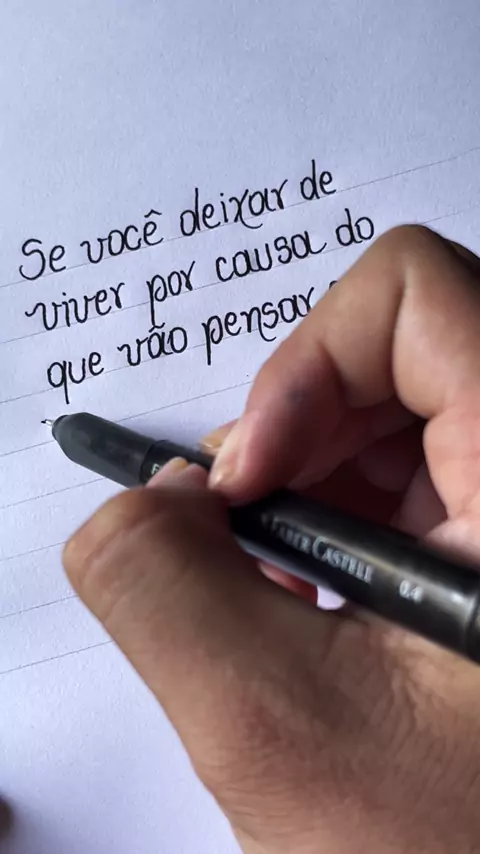 Se você deixar de
viver por causa do
que vão pensar
FABER CASTELL 0.4